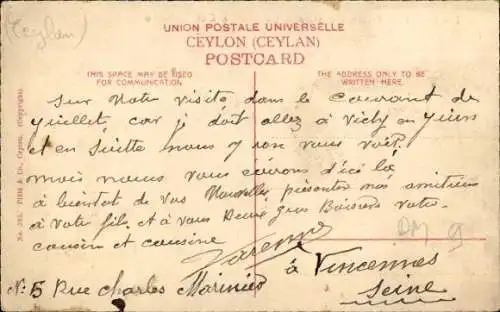 (Ceylan)
UNION POSTALE UNIVERSELLE
CEYLON (CEYLAN)
POSTCARD
THIS SPACE MAY BE USED
FOR COMMUNICATION.
THE ADDRESS ONLY TO BE
WRITTEN HERE.
Sur Notre visite dans le courant de
Juillet car je doit allez à Vichy en Juin
et en Suitte nous y ron vous voir.
mais nous vous ecirons d'ici là
à bientot de vos Nouvelles présenter nos amitiées
à votre fils et à vous Deux gros Baisers votre
cousin et cousine
à Vincennes
Seine
N: 5 Rue Charles Marinier